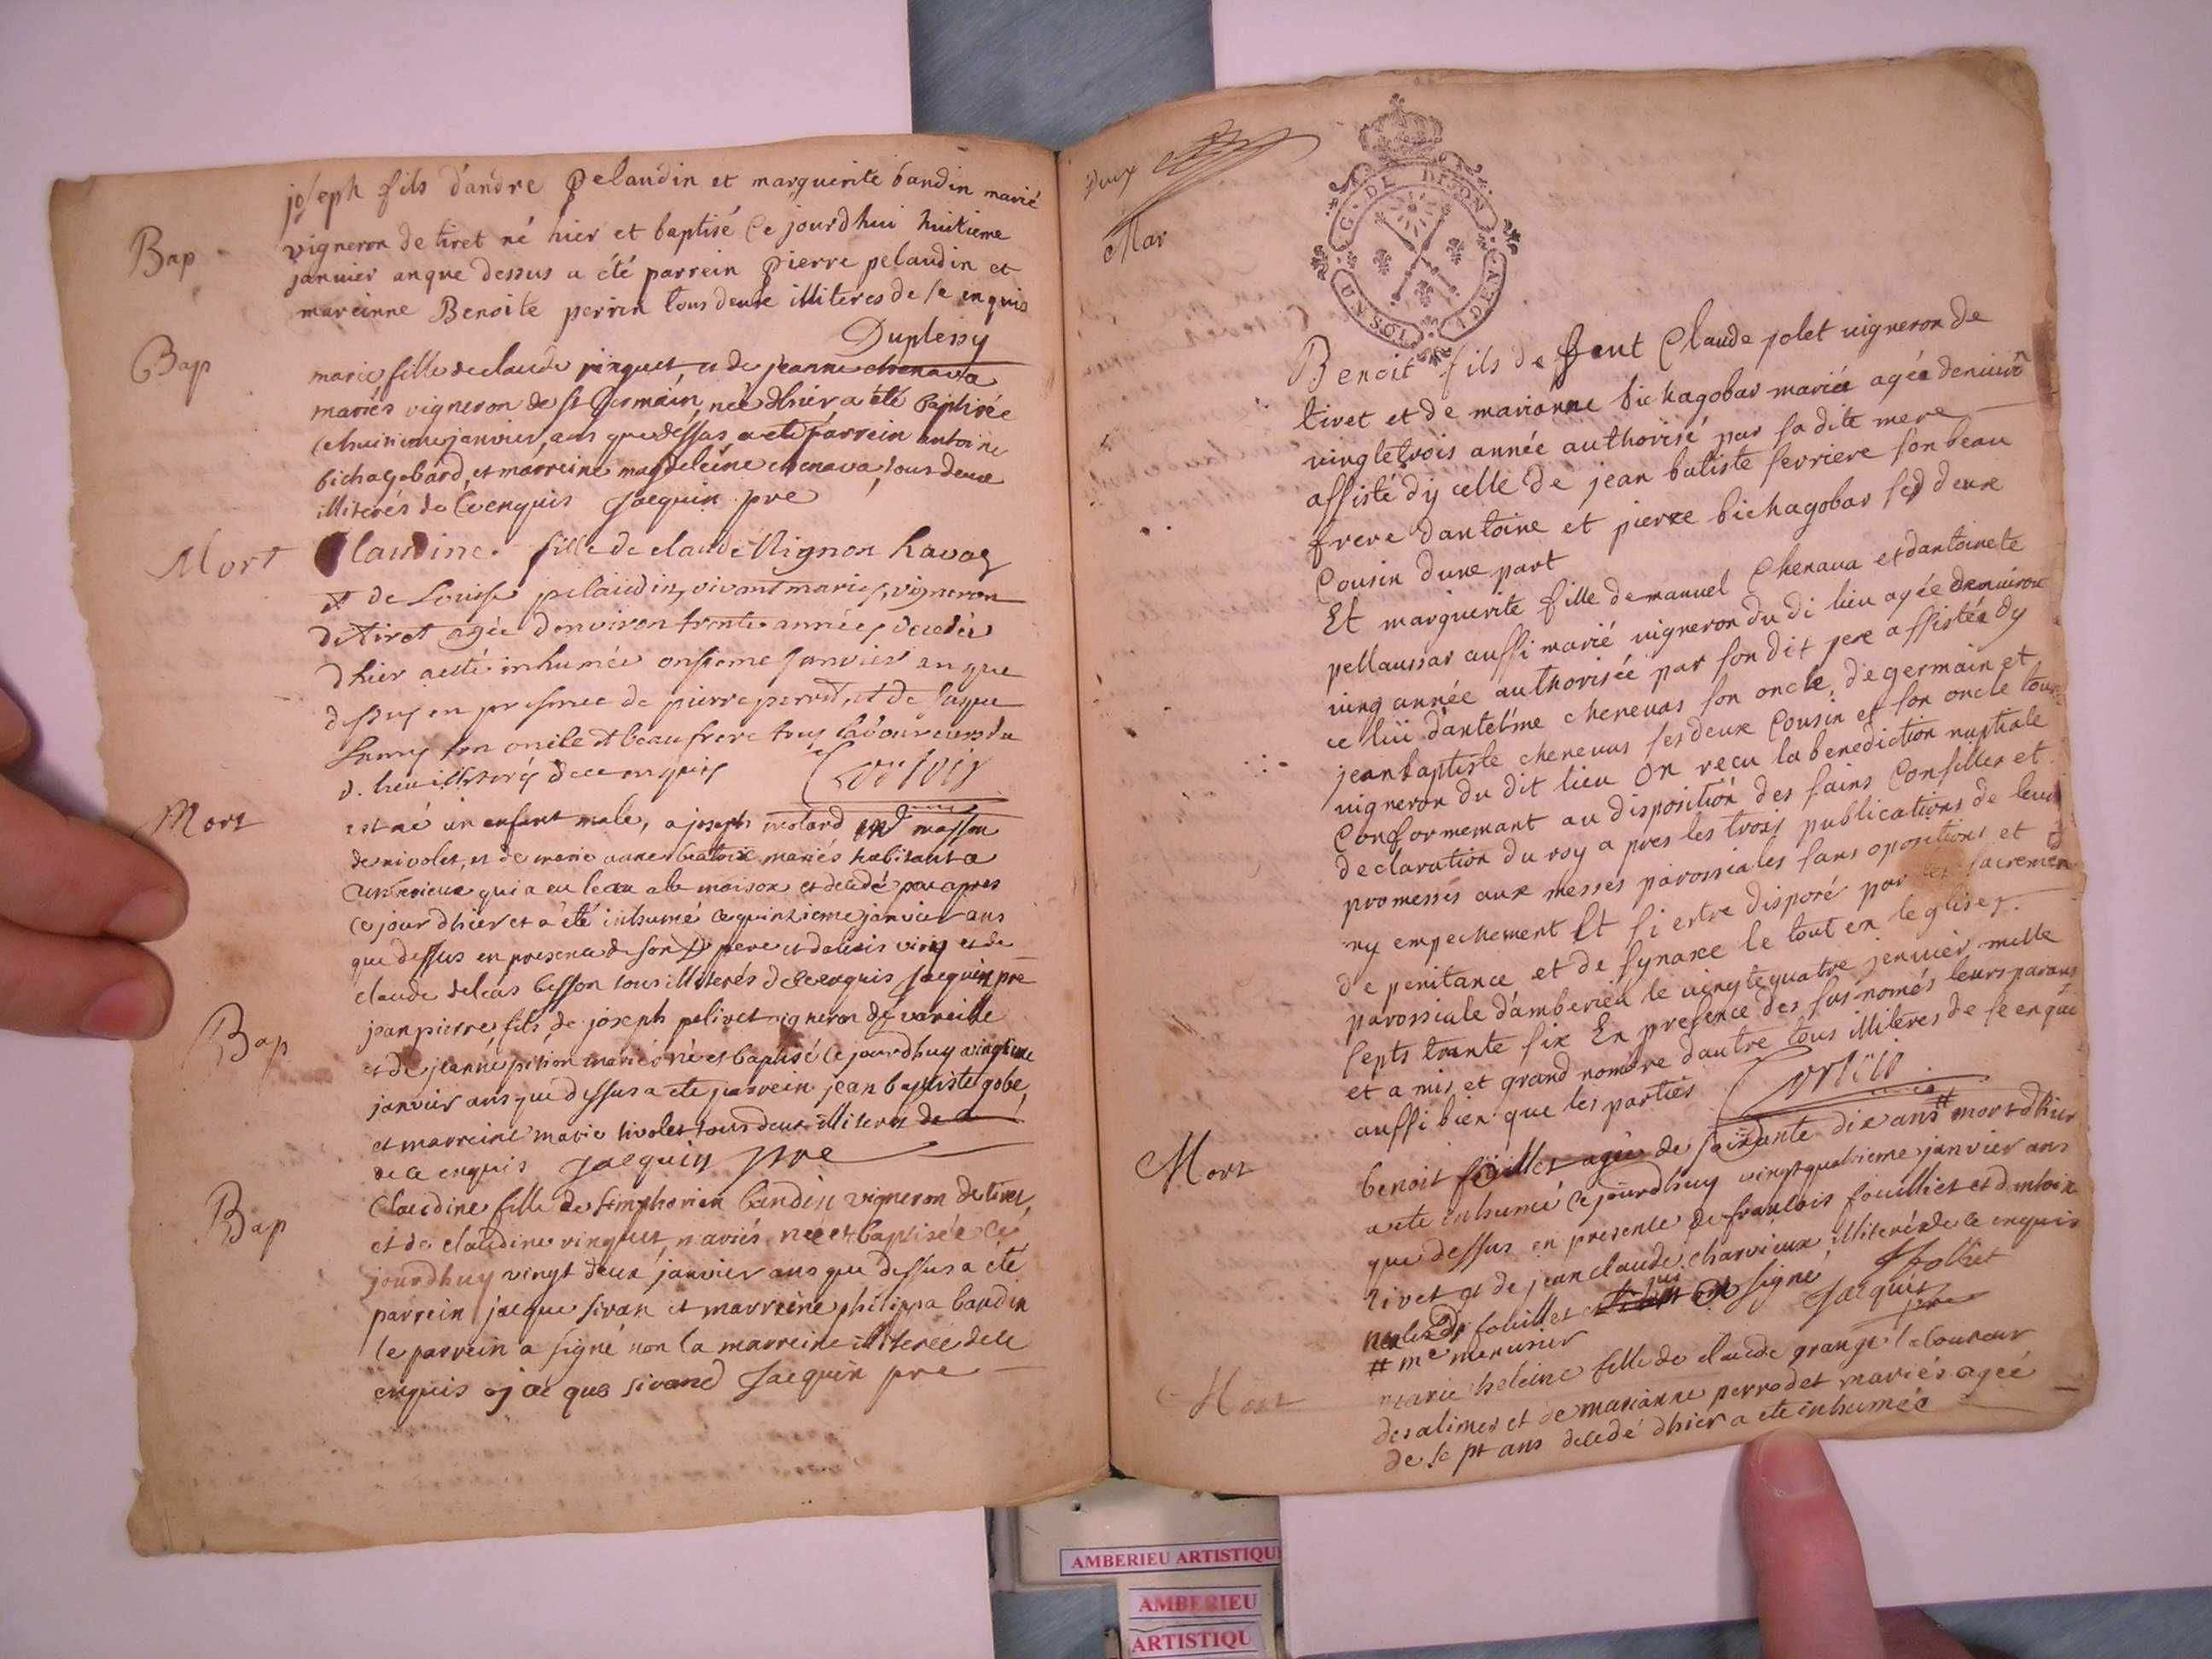 Bap
joseph fils d'andre pelaudin et marguerite baudin marié
vigneron de tiret né hier et baptisé Ce jourdhui huitieme
janvier anque dessus a été parrein pierre pelaudin et
mareinne Benoite perrin tous deux illiteres de se enquis
Duplessy
Bap
marie fille de claude pinquet et de jeanne chenava
mariés vigneron de st Germain, née dhier a été baptisée
ce huitieme janvier, ans que dessus a eté parrein antoine
bichagobard, et marreine magdeleine chenava, tous deux
illiterés de ce enquis Jacquin pre
Mort
Claudine fille de claude Mignon
et de Louise pelaudin, vivant mariés, vigneron
de tiret agée denviron trente années decedée
dhier a esté inhumée onsieme janvier an que
dessus en presence de pierre perret, et de
son oncle et beaufrere tous laboureurs du
d. lieu illiterés de ce enquis
Mort
est né un enfant male, a joseph molard masson
de nivolet, et de marie anne mariés habitant a
qui a eu leau a la maison et decedé peu apres
ce jour dhier et a été inhumé ce quinzieme janvier ans
que dessus en presence de son pere et et de
claude besson tous illiterés de ce enquis Jacquin pre
Bap
jean pierre fils de joseph pelivet vigneron de vareille
et de jeanne mariés né et baptisé ce jourdhuy vingtieme
janvier ans que dessus a ete parrein jean baptiste gobe,
et marreine marie tivolet tous deux illiteres de ce
de ce enquis Jacquin pre
Bap
Claudine fille de simphorien baudin vigneron de tiret,
et de claudine vinquet mariés, née et baptisée ce
jourdhuy vingt deux janvier ans que dessus a été
parrein jacque sivan et marreine philippa baudin
le parrein a signé non la marreine illiterée de ce
enquis jacque sivand Jacquin pre
deux
Mar
G. DE DIJON
UN SOL 4 DEN
Benoit fils de feut Claude polet vigneron de
tiret et de marianne bichagobar mariéé agée denviro
vingtetrois année authorisé par sa dite mere
assisté dy celle de jean batiste ferriere son beau
frere dantoine et pierre bichagobar ses deux
Cousin dune part
Et marguerite fille demanuel Chenava et dantoinete
pellaussar aussi marié vigneron du di lieu agée denviron
ving année authorisée par son dit pere assistée dy
ce lui dantelme chenevas son oncle, de germain et
jean baptiste chenevas ses deux Cousin et son oncle tous
vigneron du dit lieu On recu la benediction nuptiale
Conformemant au disposition des sains Conselles et
declaration du roy a pres les troys publications de leurs
promesses aux messes parossiales sans opositions et
ny empechement Et si estre disporé par les sacremen
de penitance et de synaxe le tout en leglise
parossiale damberieu le vingtequatre jenvier mille
septs trante six En presence des susnomés leurs parans
et amis et grand nombre dautre tous illiteres de se enquis
aussi bien que les parties
Mort
benoit fouillet agée de soixante dix ans # mort dhier
a ete inhumé ce jourdhuy vingtquatrieme janvier ans
que dessus en presence de francois fouilliet et dantoine
rivet et de jean claude charvieux illiterés de ce enquis
fouillet signé follict
Jacquin
pre
# me menusier
Mort
marie heleine fille de claude grange laboureur
des alimes et de marianne perrodet mariés agée
de sept ans decedé dhier a ete inhumée
AMBERIEU ARTISTIQU
AMBERIEU
ARTISTIQU